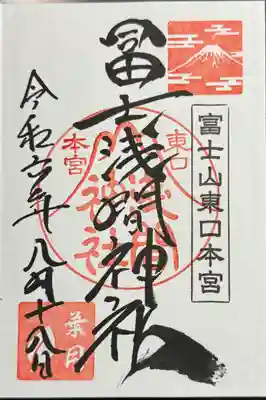 富士山東口本宮
冨士浅間神社
東口
本宮
令和六年八月十八日
葉月